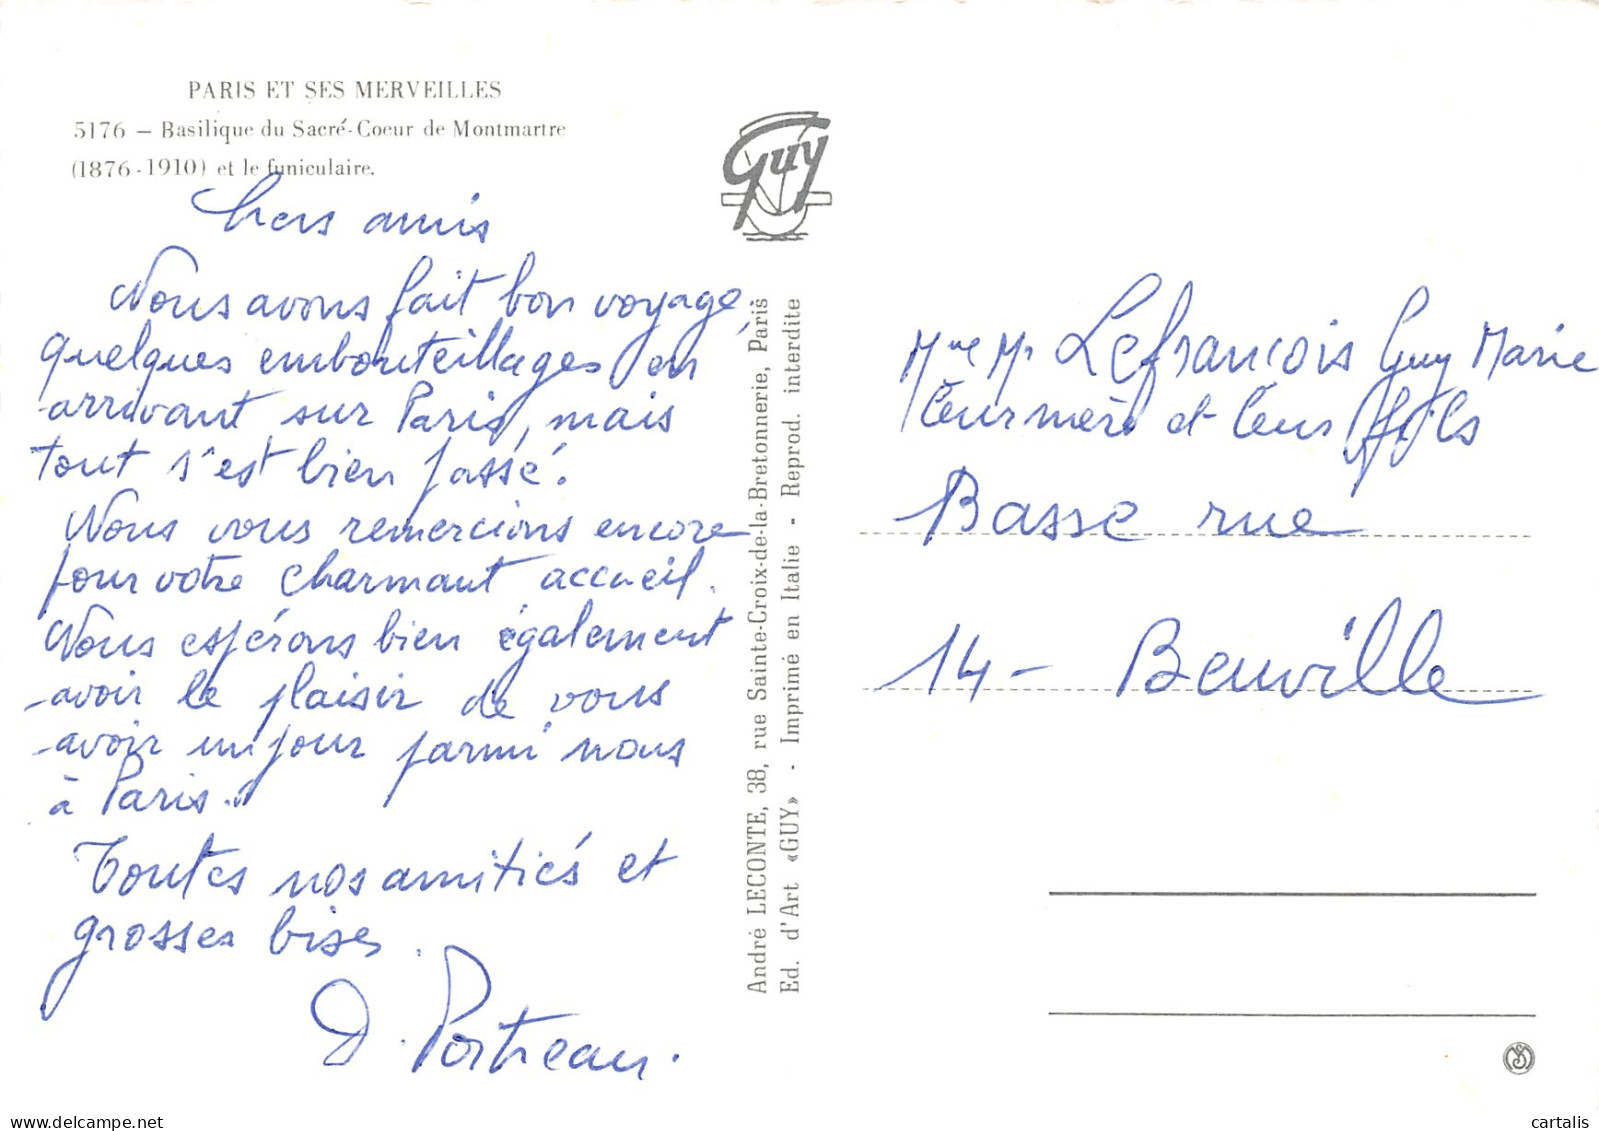 PARIS ET SES MERVEILLES
5176 – Basilique du Sacré-Coeur de Montmartre
(1876-1910) et le funiculaire.
Chers amis
Nous avons fait bon voyage,
quelques embouteillages en
arrivant sur Paris, mais
tout s'est bien passé.
Nous vous remercions encore
pour votre charmant accueil.
Nous espérons bien également
avoir le plaisir de vous
avoir un jour parmi nous
à Paris.
Toutes nos amitiés et
grosses bises.
D. Portreau.
Guy
André LECONTE, 38, rue Sainte-Croix-de-la-Bretonnerie, Paris
Ed. d'Art «GUY» - Imprimé en Italie - Reprod. interdite
Mme Mr Lefrancois Guy Marie
Leur mère et leurs fils
Basse rue
14 – Beuville
cartalis sur www.delcampe.net